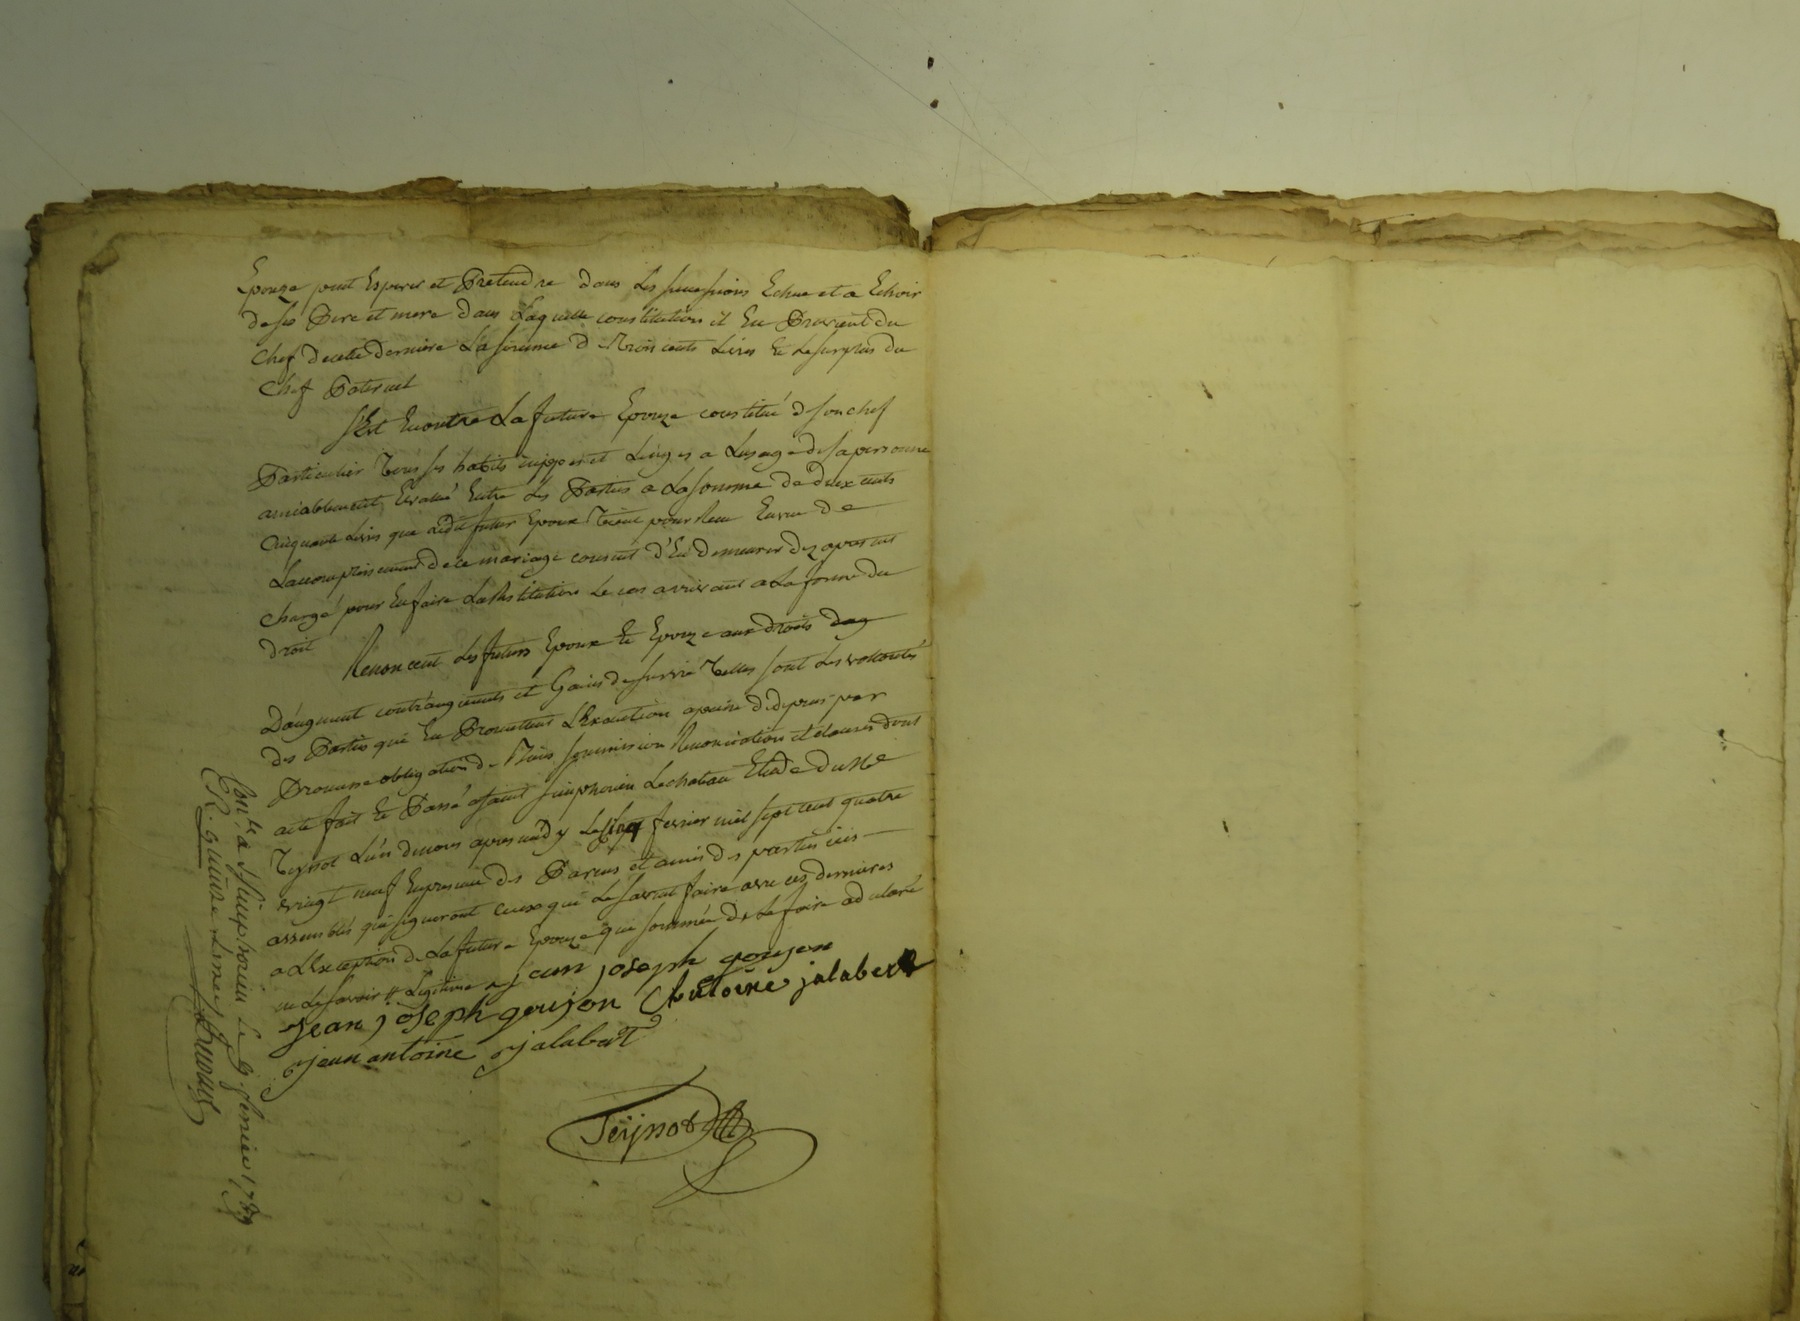 Epouze peut Esperer et Pretendre dans Les successions Echue et a Echoir
de ses Pere et mere dans Laquelle constitution il En Provient du
Chef de cette derniere La somme de Trois cents Livres Et Le surplus du
Chef Paternel
S'Est Encontre La future Epouze constitué de son chef
Particulier Tous ses habits nippes et Linges a L'usage de sa personne
amiablement Evalué Entre Les Parties a La somme de deux cents
Cinquante Livres que Ledit futur Epoux Tient pour Recu En vue de
L'accomplissement de ce mariage consent d'En demeurer dez apresent
Chargé pour En faire La Restitution Le cas arrivant a La forme du
droit
Renoncent Les futurs Epoux Et Epouze aux droits
D'augment contr'augments et Gains de survie Telles sont Les volontés
des Parties qui En Promettent L'Execution a peine de depens par
Promesse obligation de Biens soumission Renonciation et clauses dont
acte fait Et Passé a saint simphorien Le chateau Etude du Me
Teÿssot L'un de nous apres midy Le cinq fevrier mil sept cent quatre
vingt neuf En presence des Parens et amis des parties icis
assemblés qui signeront ceux qui Le savent faire avec ces dernieres
a L'Exception de La future Epouze qui sommée de Le faire a declaré
ne Le savoir # Legitime # jean joseph goujon
jean joseph goujon Antoine jalabert
jean antoine jalabert
Teÿssot
Conlé a St Simphorien Le 9 fevrier 1789
R. quinze Livres